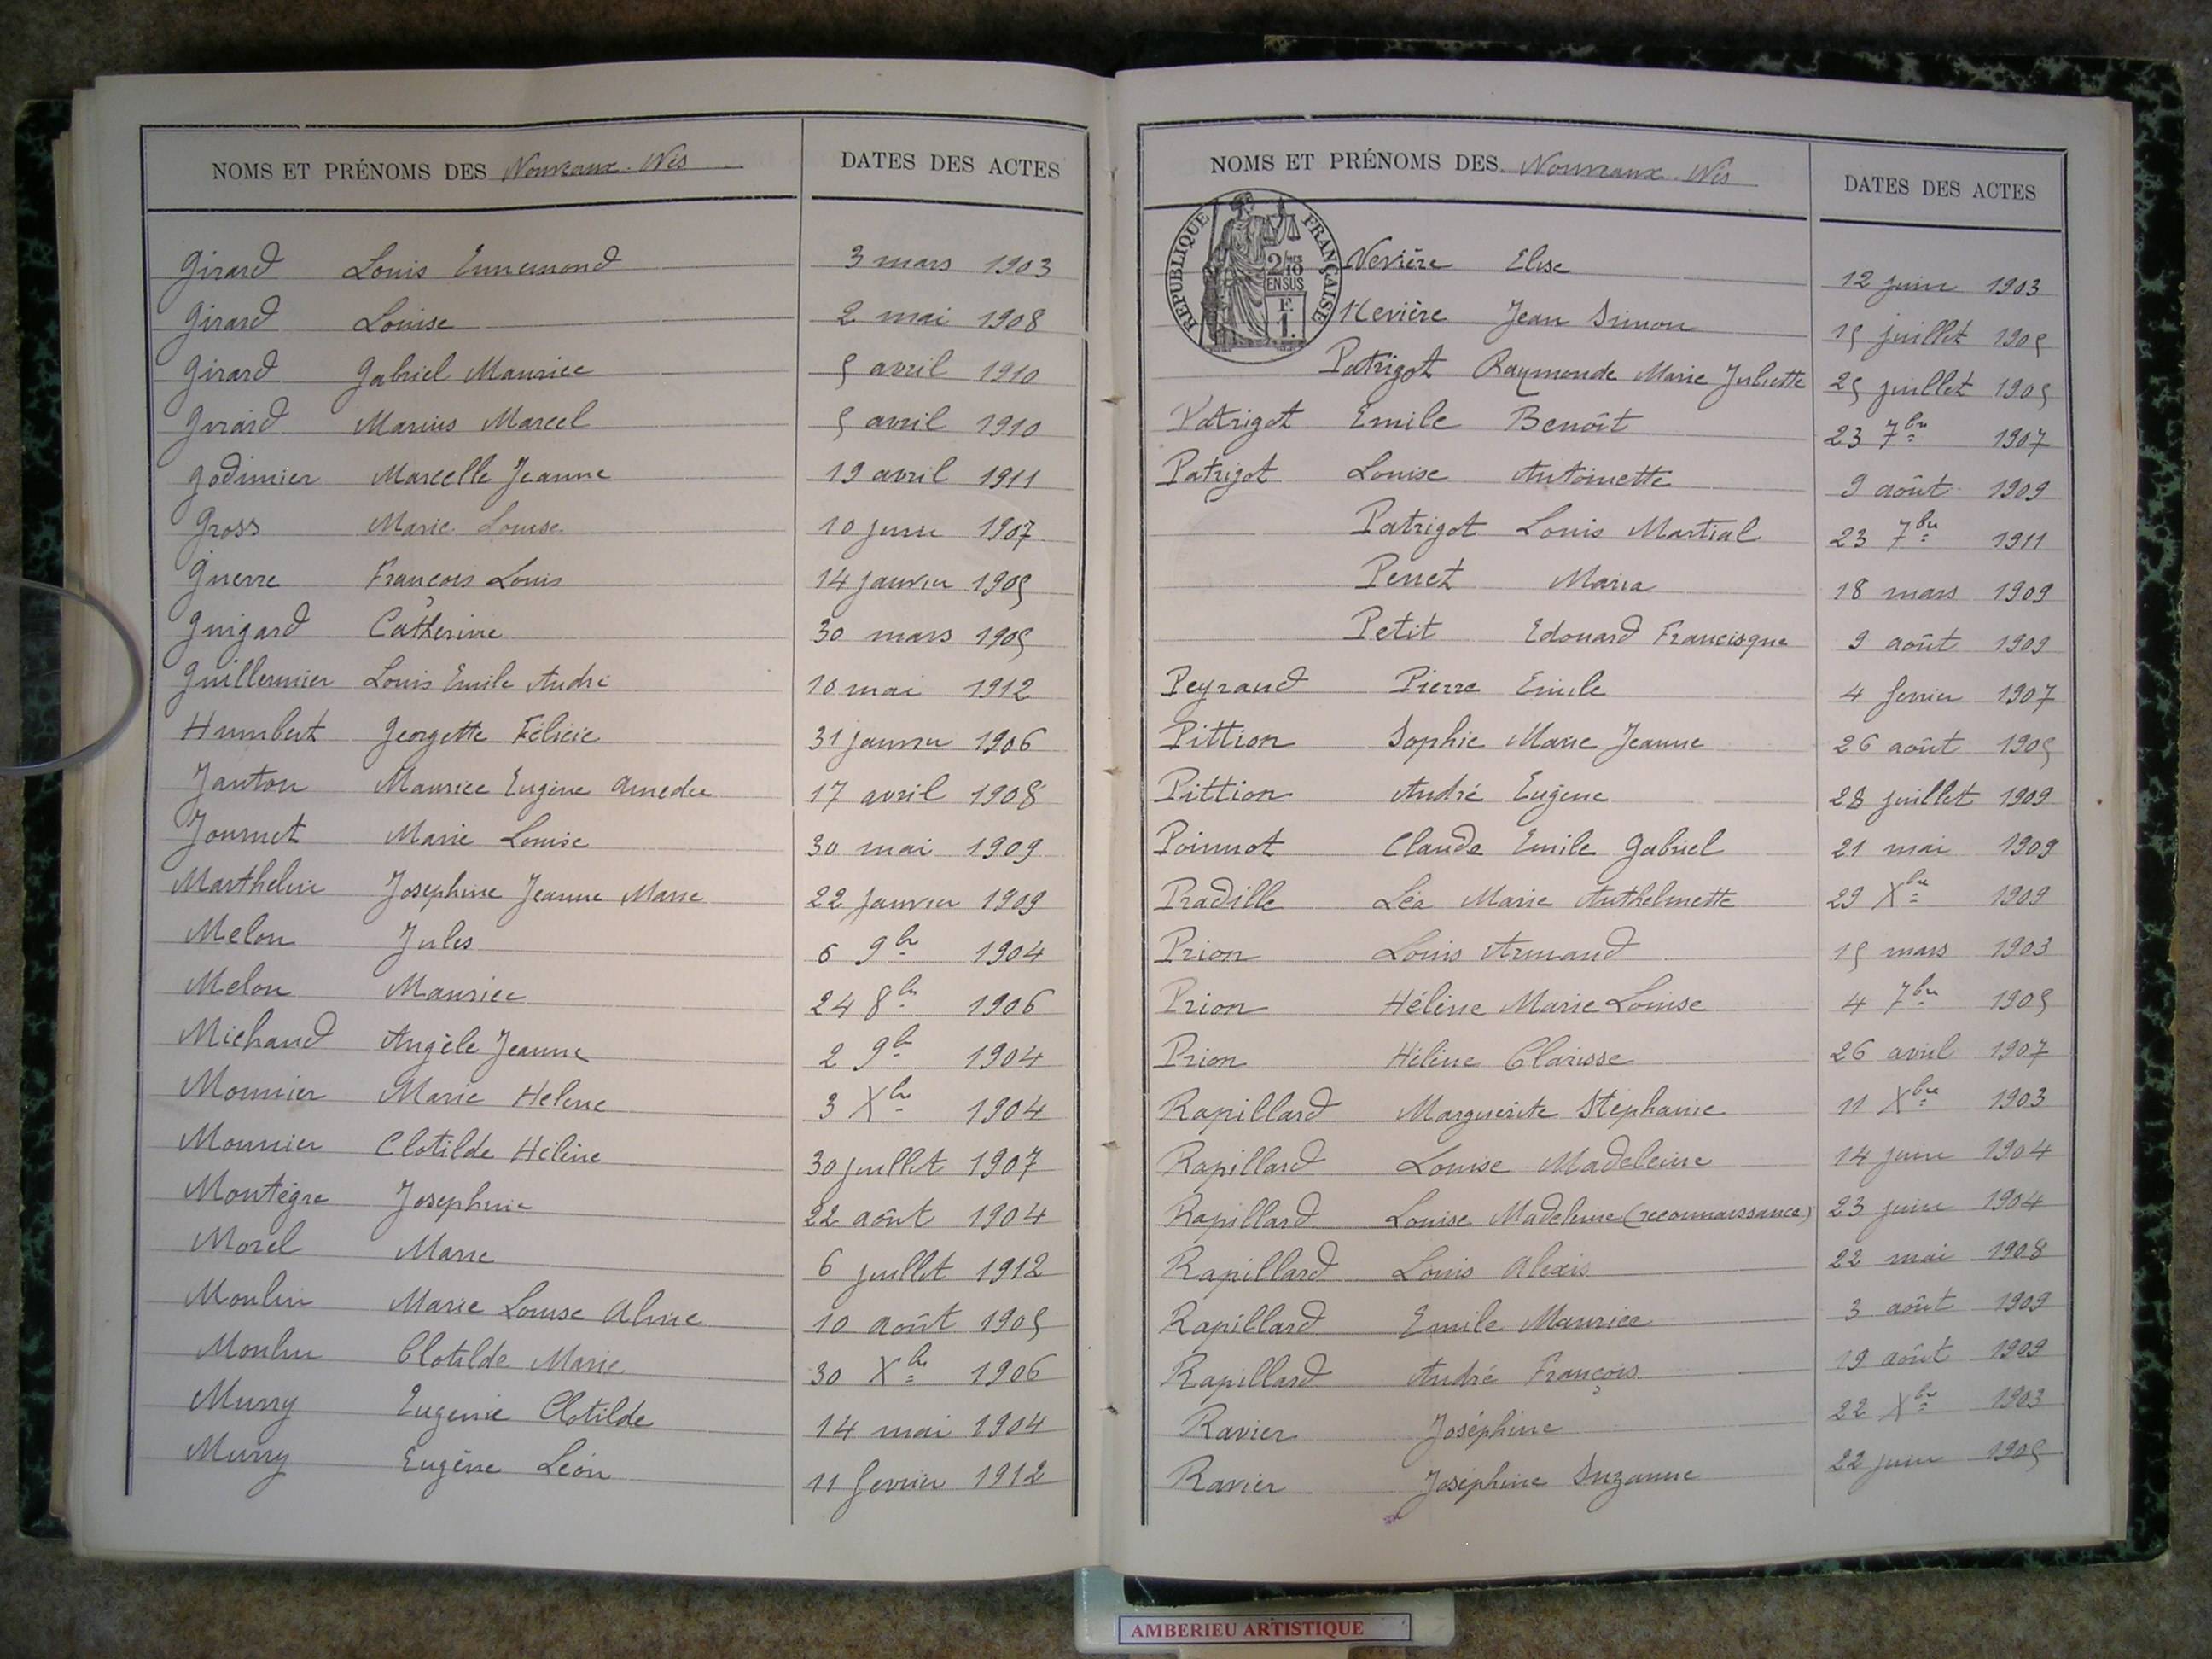 NOMS ET PRÉNOMS DES Nouveaux-Nés DATES DES ACTES
Girard Louis Ennemond 3 mars 1903
Girard Louise 2 mai 1908
Girard Gabriel Maurice 5 avril 1910
Girard Marius Marcel 5 avril 1910
Godimier Marcelle Jeanne 19 avril 1911
Gross Marie Louise 10 juin 1907
Guerre François Louis 14 janvier 1905
Guigard Catherine 30 mars 1905
Guillermier Louis Emile André 10 mai 1912
Humbert Georgette Félicie 31 janvier 1906
Janton Maurice Eugène Amedée 17 avril 1908
Journet Marie Louise 30 mai 1909
Marthelin Josephine Jeanne Marie 22 janvier 1909
Melon Jules 6 9bre 1904
Melon Maurice 24 8bre 1906
Michaud Angèle Jeanne 2 9bre 1904
Monnier Marie Helene 3 Xbre 1904
Mounier Clotilde Hélène 30 juillet 1907
Montègre Josephine 22 août 1904
Morel Marie 6 juillet 1912
Moulin Marie Louise Aline 10 août 1905
Moulin Clotilde Marie 30 Xbre 1906
Murry Eugenie Clotilde 14 mai 1904
Murry Eugène Léon 11 fevrier 1912
NOMS ET PRÉNOMS DES Nouveaux-Nés DATES DES ACTES
REPUBLIQUE FRANÇAISE
2/10 EN SUS
F. 1.
Nevière Elise 12 juin 1903
Nevière Jean Simon 15 juillet 1905
Patrigot Raymonde Marie Juliette 25 juillet 1905
Patrigot Emile Benoît 23 7bre 1907
Patrigot Louise Antoinette 9 août 1909
Patrigot Louis Martial 23 7bre 1911
Perret Maria 18 mars 1909
Petit Edouard Francisque 9 août 1909
Peyraud Pierre Emile 4 fevrier 1907
Pittion Sophie Marie Jeanne 26 août 1905
Pittion André Eugène 28 juillet 1909
Poinnot Claude Emile Gabriel 21 mai 1909
Pradille Léa Marie Anthelmette 29 Xbre 1909
Prion Louis Armand 15 mars 1903
Prion Hélène Marie Louise 4 7bre 1905
Prion Hélène Clarisse 26 avril 1907
Rapillard Marguerite Stephanie 11 Xbre 1903
Rapillard Louise Madeleine 14 juin 1904
Rapillard Louise Madeleine (reconnaissance) 23 juin 1904
Rapillard Louis Alexis 22 mai 1908
Rapillard Emile Maurice 3 août 1909
Rapillard André François 19 août 1909
Ravier Joséphine 22 Xbre 1903
Ravier Joséphine Suzanne 22 juin 1905
AMBERIEU ARTISTIQUE